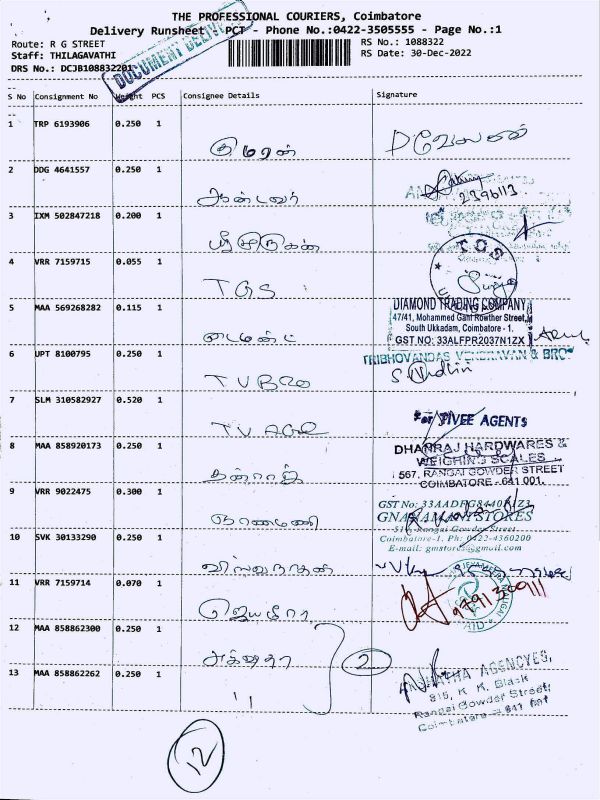 THE PROFESSIONAL COURIERS, Coimbatore
Delivery Runsheet - PCT - Phone No.:0422-3505555 - Page No.:1
Route: R G STREET
RS No.: 1088322
Staff: THILAGAVATHI
RS Date: 30-Dec-2022
DRS No.: DCJB108832201
DOCUMENT DELIVERY
S No Consignment No Weight PCS Consignee Details Signature
1 TRP 6193906 0.250 1 குமரன்
2 DDG 4641557 0.250 1
3 IXM 502847218 0.200 1 ஸ்ரீமுருகன்
4 VRR 7159715 0.055 1 TGS TGS
5 MAA 569268282 0.115 1 டைமண்ட்
DIAMOND TRADING COMPANY
47/41, Mohammed Gani Rowther Street,
South Ukkadam, Coimbatore - 1.
GST NO: 33ALFPR2037N1ZX
6 UPT 8100795 0.250 1 TVBRO
TRIBHOVANDAS VENDRAVAN & BRO
7 SLM 310582927 0.520 1 TV AGE
For TVEE AGENTS
8 MAA 858920173 0.250 1 தன்ராஜ்
DHANRAJ HARDWARES &
WEIGHING SCALES
567, RANGAI GOWDER STREET
COIMBATORE - 641 001.
9 VRR 9022475 0.300 1 ஞானமணி
GNANAMANY STORES
Rangai Gowder Street
Coimbatore-1. Ph: 0422-4360200
E-mail: gmstores@gmail.com
10 SVK 30133290 0.250 1 விஸ்வநாதன்
11 VRR 7159714 0.070 1 ஜெயமீரா
9791300911
12 MAA 858862300 0.250 1 அக்ஷதா 2
13 MAA 858862262 0.250 1 "
AGENCYES,
815, K. K. Block
Rangai Gowder Street,
Coimbatore - 641 001
12